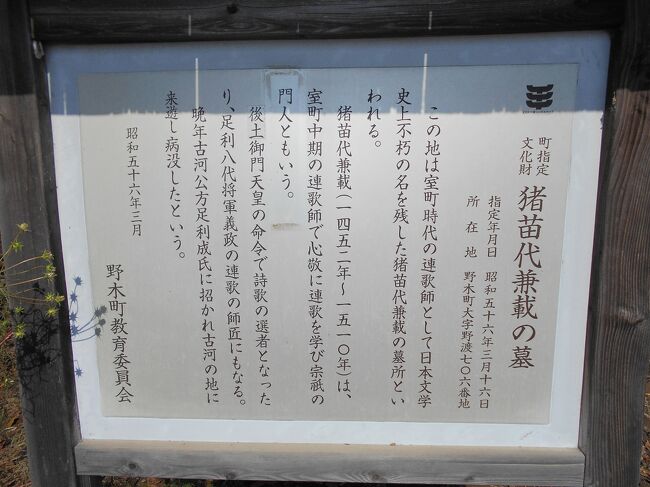 町指定
文化財
猪苗代兼載の墓
指定年月日　昭和五十六年三月十六日
所在地　野木町大字野渡七〇六番地
この地は室町時代の連歌師として日本文学
史上不朽の名を残した猪苗代兼載の墓所とい
われる。
猪苗代兼載（一四五二年～一五一〇年）は、
室町中期の連歌師で心敬に連歌を学び宗祇の
門人ともいう。
後土御門天皇の命令で詩歌の選者となった
り、足利八代将軍義政の連歌の師匠にもなる。
晩年古河公方足利成氏に招かれ古河の地に
来遊し病没したという。
昭和五十六年三月
野木町教育委員会